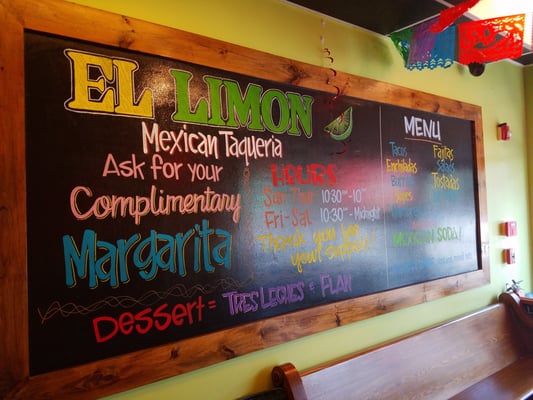 EL LIMON
Mexican Taqueria
Ask for your
Complimentary
Margarita
HOURS
Sun-Thur 10:30AM-10PM
Fri-Sat 10:30-Midnight
Thank you for
your support!
Dessert = Tres Leches & Flan
MENU
Tacos Fajitas
Enchiladas Salads
Tostadas
MEXICAN SODA!